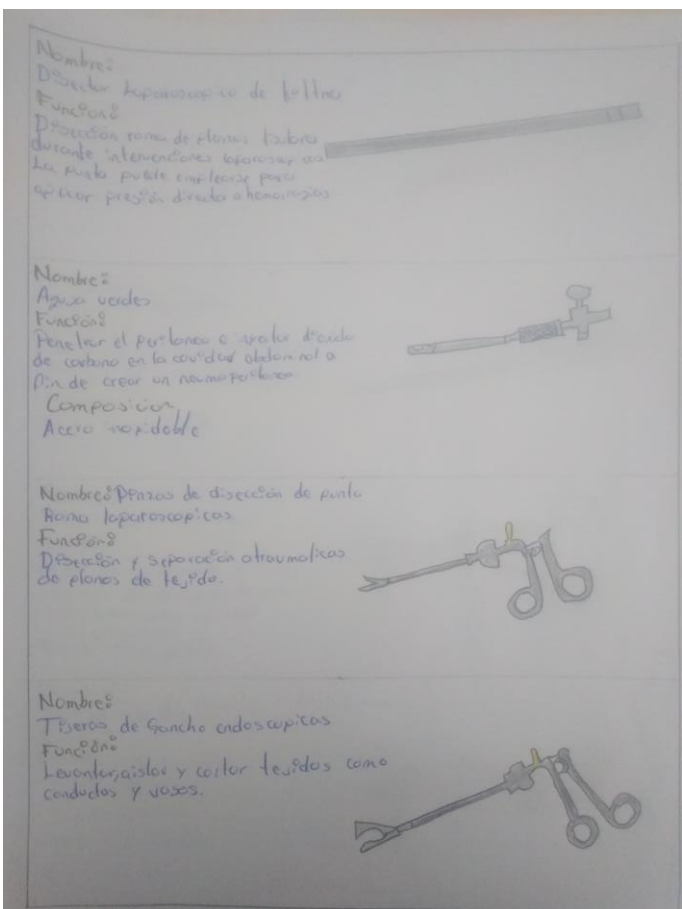 Nombre:
Disector Laparoscopico de kittner
Función:
Disección roma de planos tisulares
durante intervenciones laparoscopicas
La punta puede emplearse para
aplicar presión directa a hemorragias
Nombre:
Aguja verdes
Función:
Penetrar el peritoneo e insuflar dioxido
de carbono en la cavidad abdominal a
fin de crear un neumoperitoneo
Composicion
Acero inoxidable
Nombre: Pinzas de disección de punta
Roma laparoscopicas
Función:
Disección y separación atraumaticas
de planos de tejido.
Nombre:
Tiseras de Gancho endoscopicas
Función:
Levantar, aislar y cortar tejidos como
conductos y vasos.